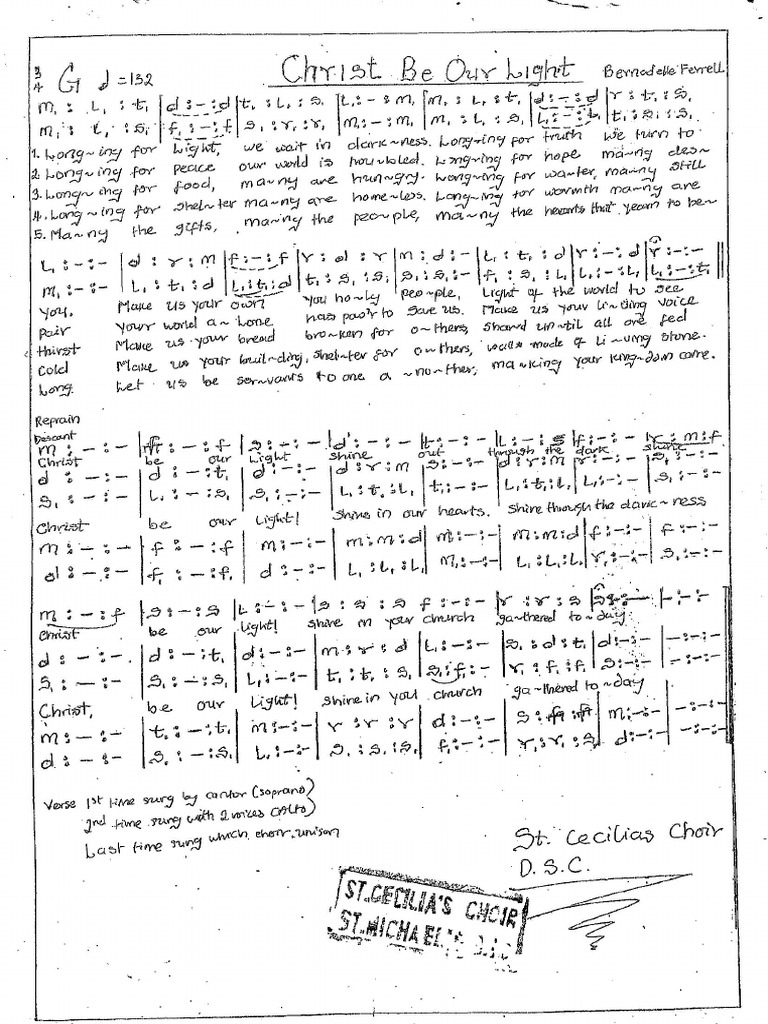 3/4 G d = 132 Christ Be Our Light Bernadette Farrell
m, : l, : t, | d : - : d | t, : l, : s, | l, : - : m, | m, : l, : t, | d : - : d | r : t, : s,
m, : l, : s, | f, : - : f, | s, : r, : r, | m, : - : m, | m, : l, : s, | l, : - : l, | t, : s, : s,
1. Long~ing for Light, we wait in dark~ness. Long~ing for truth we turn to
2. Long~ing for peace our world is troubled. Long~ing for hope ma~ny des~
3. Long~ing for food, ma~ny are hun~gry. Long~ing for wa~ter, ma~ny still
4. Long~ing for shel~ter ma~ny are home~less. Long~ing for warmth ma~ny are
5. Ma~ny the gifts, ma~ny the peo~ple, ma~ny the hearts that yearn to be~
l, : - : - | d : r : m | f : - : f | r : d : r | m : d : - | l, : t, : d | r : - : d | r : - : -
m, : - : - | l, : t, : d | l, : t, : d | t, : s, : s, | s, : s, : - | f, : s, : l, | l, : - : l, | l, : - : t,
you. Make us your own your ho~ly peo~ple, Light of the world to see
pair your world a~lone has pow'r to save us. Make us your li~ving voice
thirst Make us your bread bro~ken for o~thers, shared un~til all are fed
cold Make us your buil~ding, shel~ter for o~thers, walls made of li~ving stone.
Long. Let us be ser~vants to one a~no~ther, ma~king your king~dom come.
Reprain
Descant
m : - : - | f : - : f | s : - : - | d' : - : - | t : - : - | l : - : s | f : - : - | r : m : f
Christ be our light shine out through the dark shine
d : - : - | d : - : t, | d : - : - | d : r : m | s : - : - | d : r : m | r : - : - | s, : - : -
s, : - : - | l, : - : s, | s, : - : - | l, : t, : l, | t, : - : - | l, : t, : l, | l, : - : - | s, : - : -
Christ be our light! Shine in our hearts. Shine through the dark~ness
m : - : - | f : - : f | m : - : - | m : m : d | m : - : - | m : m : d | f : - : - | f : - : -
d : - : - | f, : - : f, | d : - : - | l, : l, : l, | m, : - : - | l, : l, : l, | r, : - : - | s, : - : -
m : - : f | s : - : s | l : - : - | s : s : s | f : - : - | r : r : s | s : - : - | - : - : -
Christ be our light! shine in your church ga~thered to~day
d : - : - | d : - : t, | d : - : - | m : r : d | l, : - : - | s, : d : t, | d : - : - | - : - : -
s, : - : - | s, : - : s, | l, : - : - | t, : t, : s, | s, : f, : - | r, : f, : f, | s, : - : - | - : - : -
Christ, be our Light! Shine in you church ga~thered to~day
m : - : - | t, : - : t, | m : - : - | r : r : r | d : - : - | m : - : - | - : - : -
d : - : - | s, : - : s, | l, : - : - | s, : s, : s, | f, : - : - | r, : r, : s, | d, : - : - | - : - : -
Verse 1st time sung by cantor (soprano)
2nd time sung with 2 voices (Alto)
Last time sung which choir unison
St. Cecilias Choir
D.S.C.
ST. CECILIA'S CHOIR
ST. MICHAEL'S